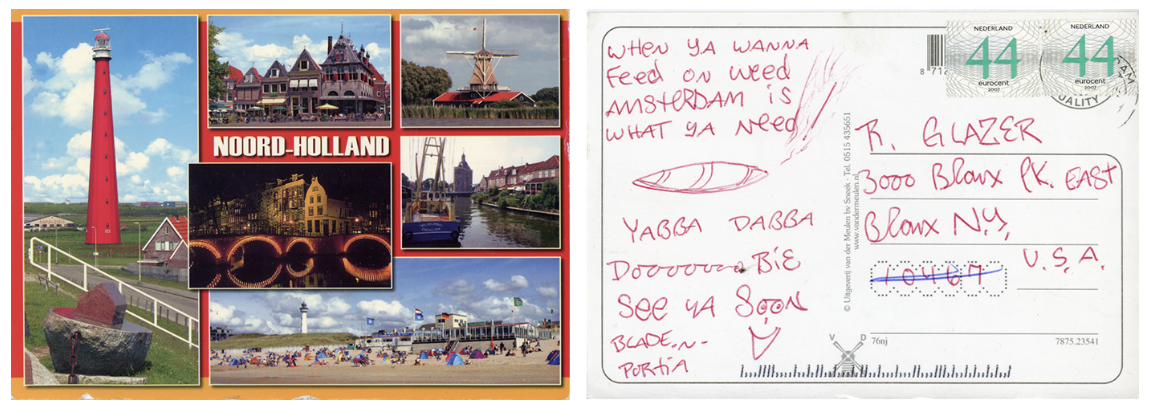 NOORD-HOLLAND
WHEN YA WANNA
FEED ON WEED
AMSTERDAM IS
WHAT YA NEED
YABBA DABBA
DOOOOOOO BIE
SEE YA SOON
BLADE-N-
PORTIA
8 712
NEDERLAND
44
eurocent
2007
NEDERLAND
44
eurocent
2007
QUALITY
© Uitgeverij van der Meulen bv Sneek - Tel. 0515 435651
www.vandermeulen.nl
R. GLAZER
3000 Bronx PK. EAST
Bronx N.Y.
10467
U.S.A.
V D
76nj
7875.23541